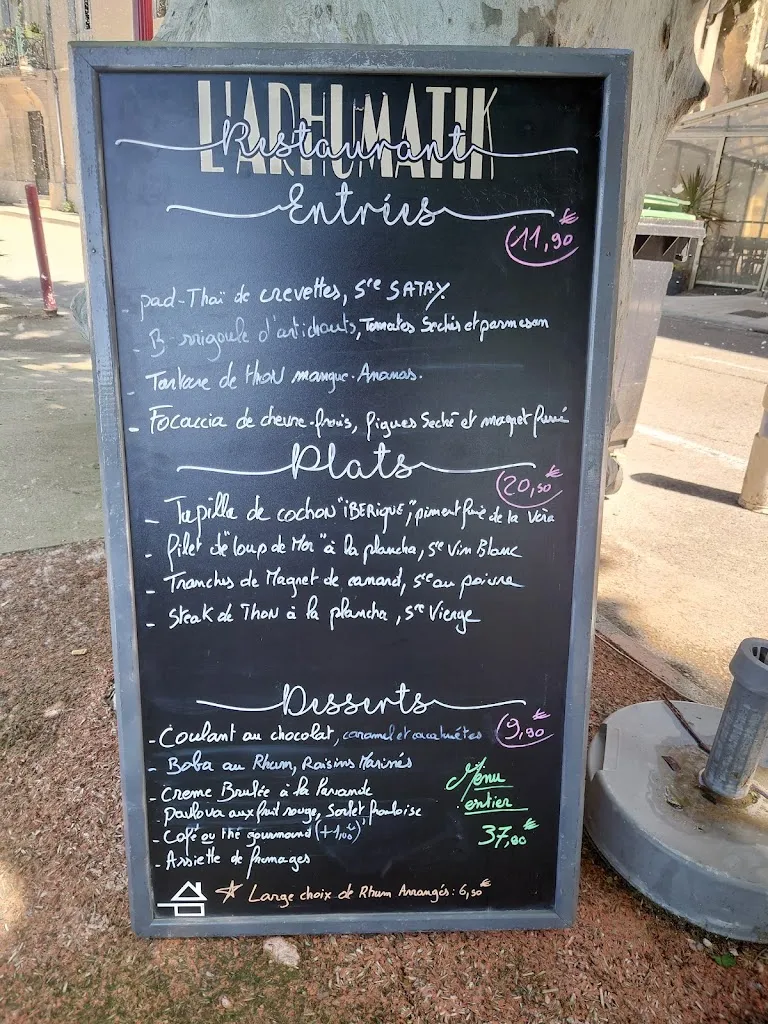 L'ARHUMATIK
Restaurant
Entrées
11,90€
- pad-Thaï de crevettes, Sce SATAY
- B-rigoule d'artichauts, Tomates Sechés et parmesan
- Tartare de thon mangue-Ananas.
- Focaccia de chevre-frais, figues Seché et magret fumé
Plats
20,50€
- Tapilla de cochon "iBERIQUE", piment fumé de la Vera
- Filet de "loup de Mer" à la plancha, Sce Vin Blanc
- Tranches de Magret de canard, Sce au poivre
- Steak de Thon à la plancha, Sce Vierge
Desserts
- Coulant au chocolat, caramel et cacahuètes
9,90€
- Baba au Rhum, Raisins Marinés
- Creme Brulée à la Lavande
Pavlova aux fruit rouge, Sorbet framboise
- Café ou thé gourmand (+1,00€)
- Assiette de fromages
Menu
entier
37,00€
Large choix de Rhum Arrangés: 6,50€